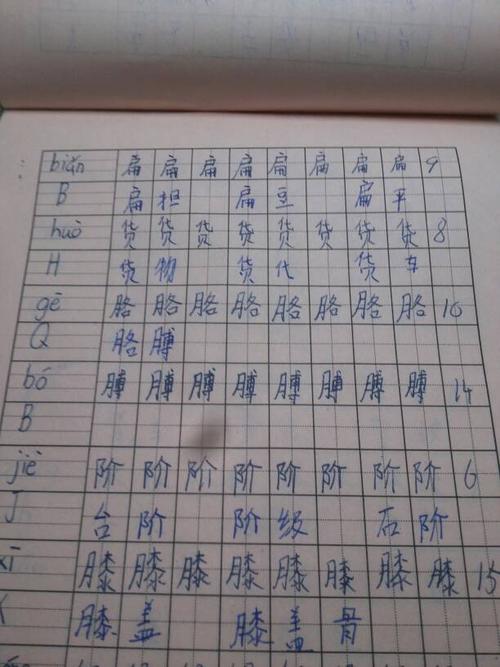 biǎn 扁 扁 扁 扁 扁 扁 扁 扁 9
B 扁担 扁豆 扁平
huò 货 货 货 货 货 货 货 货 8
H 货物 货代 货车
gē 胳 胳 胳 胳 胳 胳 胳 胳 10
Q 胳膊
bó 膊 膊 膊 膊 膊 膊 膊 膊 14
B
jiē 阶 阶 阶 阶 阶 阶 阶 阶 6
J 台阶 阶级 石阶
xī 膝 膝 膝 膝 膝 膝 膝 膝 15
膝盖 膝盖骨